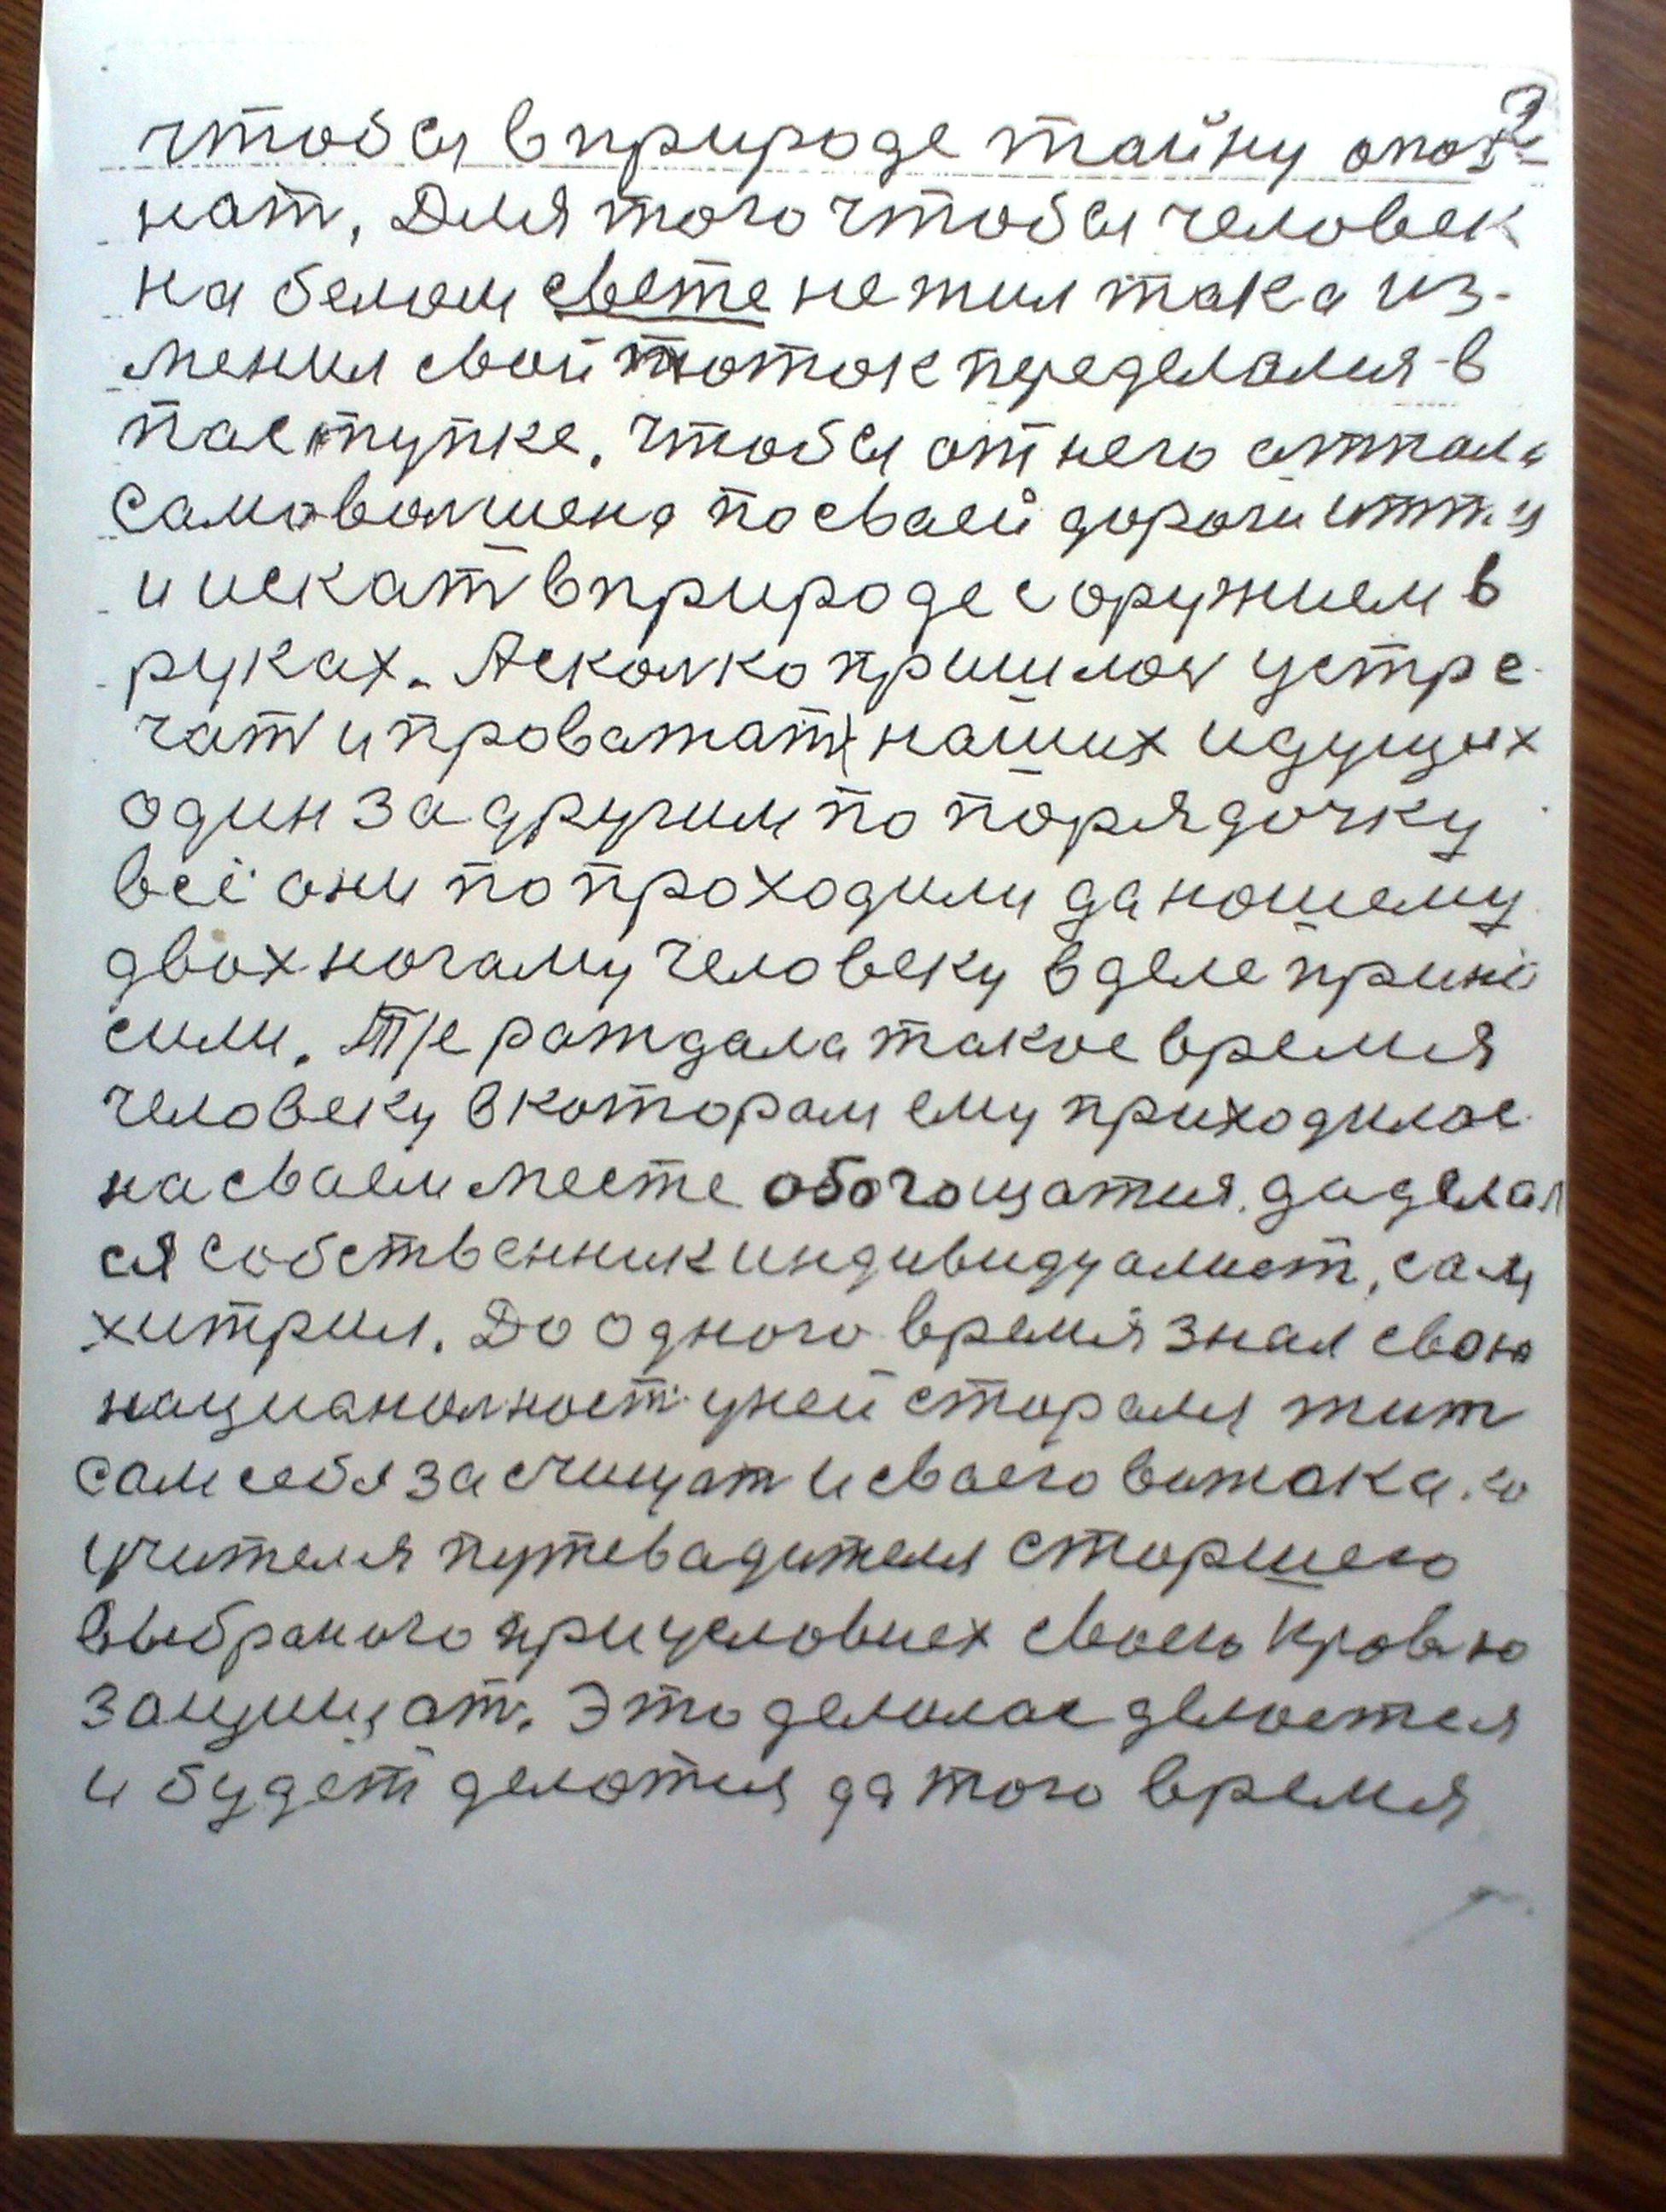 2
чтобы в природе тайну опоз-
нат, Для того чтобы человек
на белом свете не жил така из-
менил свой поток переделался в
паступке. Чтобы от него оттпала
самоволшена по сваей дороги итти
и искат в природе с оружием в
руках. Асколко пришлос устре-
чат и проважат наших идущих
один за другим по порядочку
всё они попроходили да нашему
двохногаму человеку в деле прино
сили. раждала такое время
человеку в котором ему приходилос
на сваем месте обогощатся. да делал
ся собственник индивидуалист, сам
хитрил. До одного время знал свою
национолност у ней старался жит
сам себя защищат и сваего важака. 
учителя путевадителя старшего
выбраного при условиех своею кровю
защищат. Это делалос делоется
и будет делатся да того время